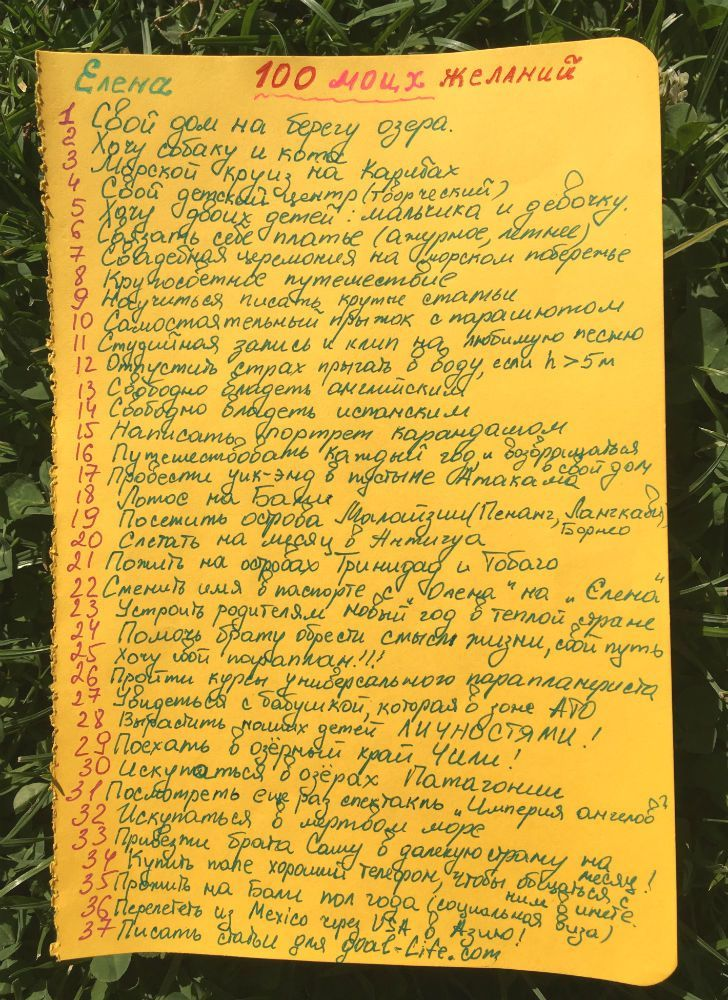 Елена 100 моих желаний
1 Свой дом на берегу озера.
2 Хочу собаку и кота
3 Морской круиз на Карибах
4 Свой детский центр (творческий)
5 Хочу двоих детей: мальчика и девочку.
6 Связать себе платье (ажурное, летнее)
7 Свадебная церемония на морском побережье
8 Кругосветное путешествие
9 Научиться писать крутые статьи
10 Самостоятельный прыжок с парашютом
11 Студийная запись и клип на любимую песню
12 Отпустить страх прыгать в воду, если h>5м
13 Свободно владеть английским
14 Свободно владеть испанским
15 Написать портрет карандашом
16 Путешествовать каждый год и возвращаться
в свой дом
17 Провести уик-энд в пустыне Атакама
18 Лотос на Бали
19 Посетить острова Малайзии (Пенанг, Лангкави,
Борнео
20 Слетать на месяц в Антигуа
21 Пожить на островах Тринидад и Тобаго
22 Сменить имя в паспорте с „Олена“ на „Елена“
23 Устроить родителям новый год в теплой стране
24 Помочь брату обрести смысл жизни, свой путь
25 Хочу свой параплан!!!
26 Пройти курсы универсального парапланериста
27 Увидеться с бабушкой, которая в зоне АТО
28 Вырастить наших детей ЛИЧНОСТЯМИ!
29 Поехать в озёрный край Чили!
30 Искупаться в озёрах Патагонии
31 Посмотреть еще раз спектакль „Империя ангелов“
32 Искупаться в мертвом море
33 Привезти брата Сашу в далекую страну на
месяц!
34 Купить папе хороший телефон, чтобы общаться с
ним в инете.
35 Прожить на Бали пол года (социальная виза)
36 Перелететь из Mexico через USA в Азию!
37 Писать статьи для goal-Life.com